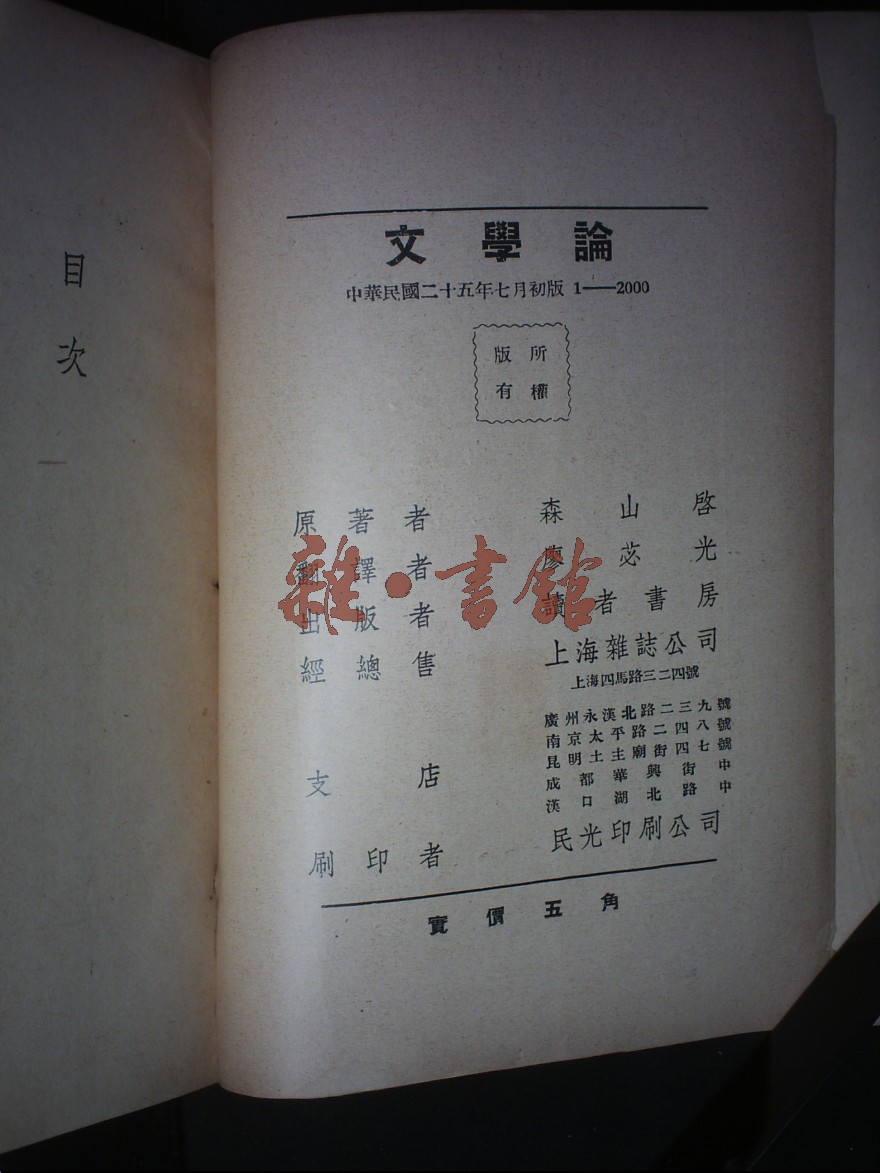 目次
文學論
中華民國二十五年七月初版 1——2000
版所
有權
原著者 森山啓
翻譯者 廖苾光
出版者 讀者書房
經總售 上海雜誌公司
上海四馬路三二四號
廣州永漢北路二三九號
南京太平路二四八號
昆明土主廟街四七號
成都華興街中
漢口湖北路中
支店
刷印者 民光印刷公司
實價五角
雜·書館